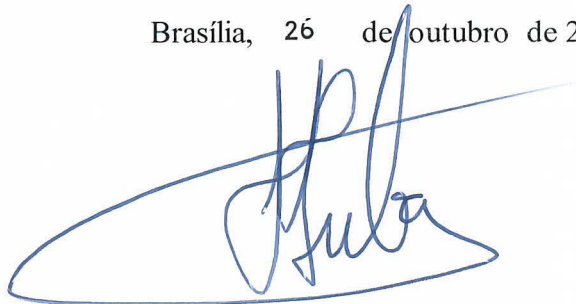 Brasília, 26 de outubro de 2